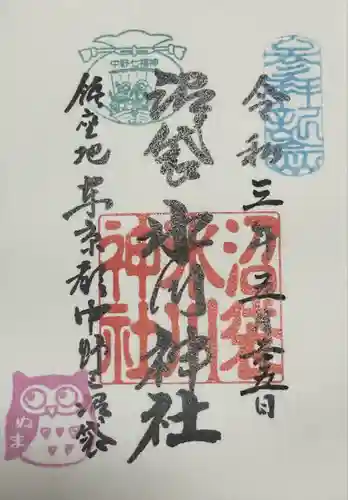 参拝記念
令和三年五月廿五日
沼袋氷川神社
沼袋
氷川
神社
中野七福神
鎮座地東京都中野区沼袋
ぬま